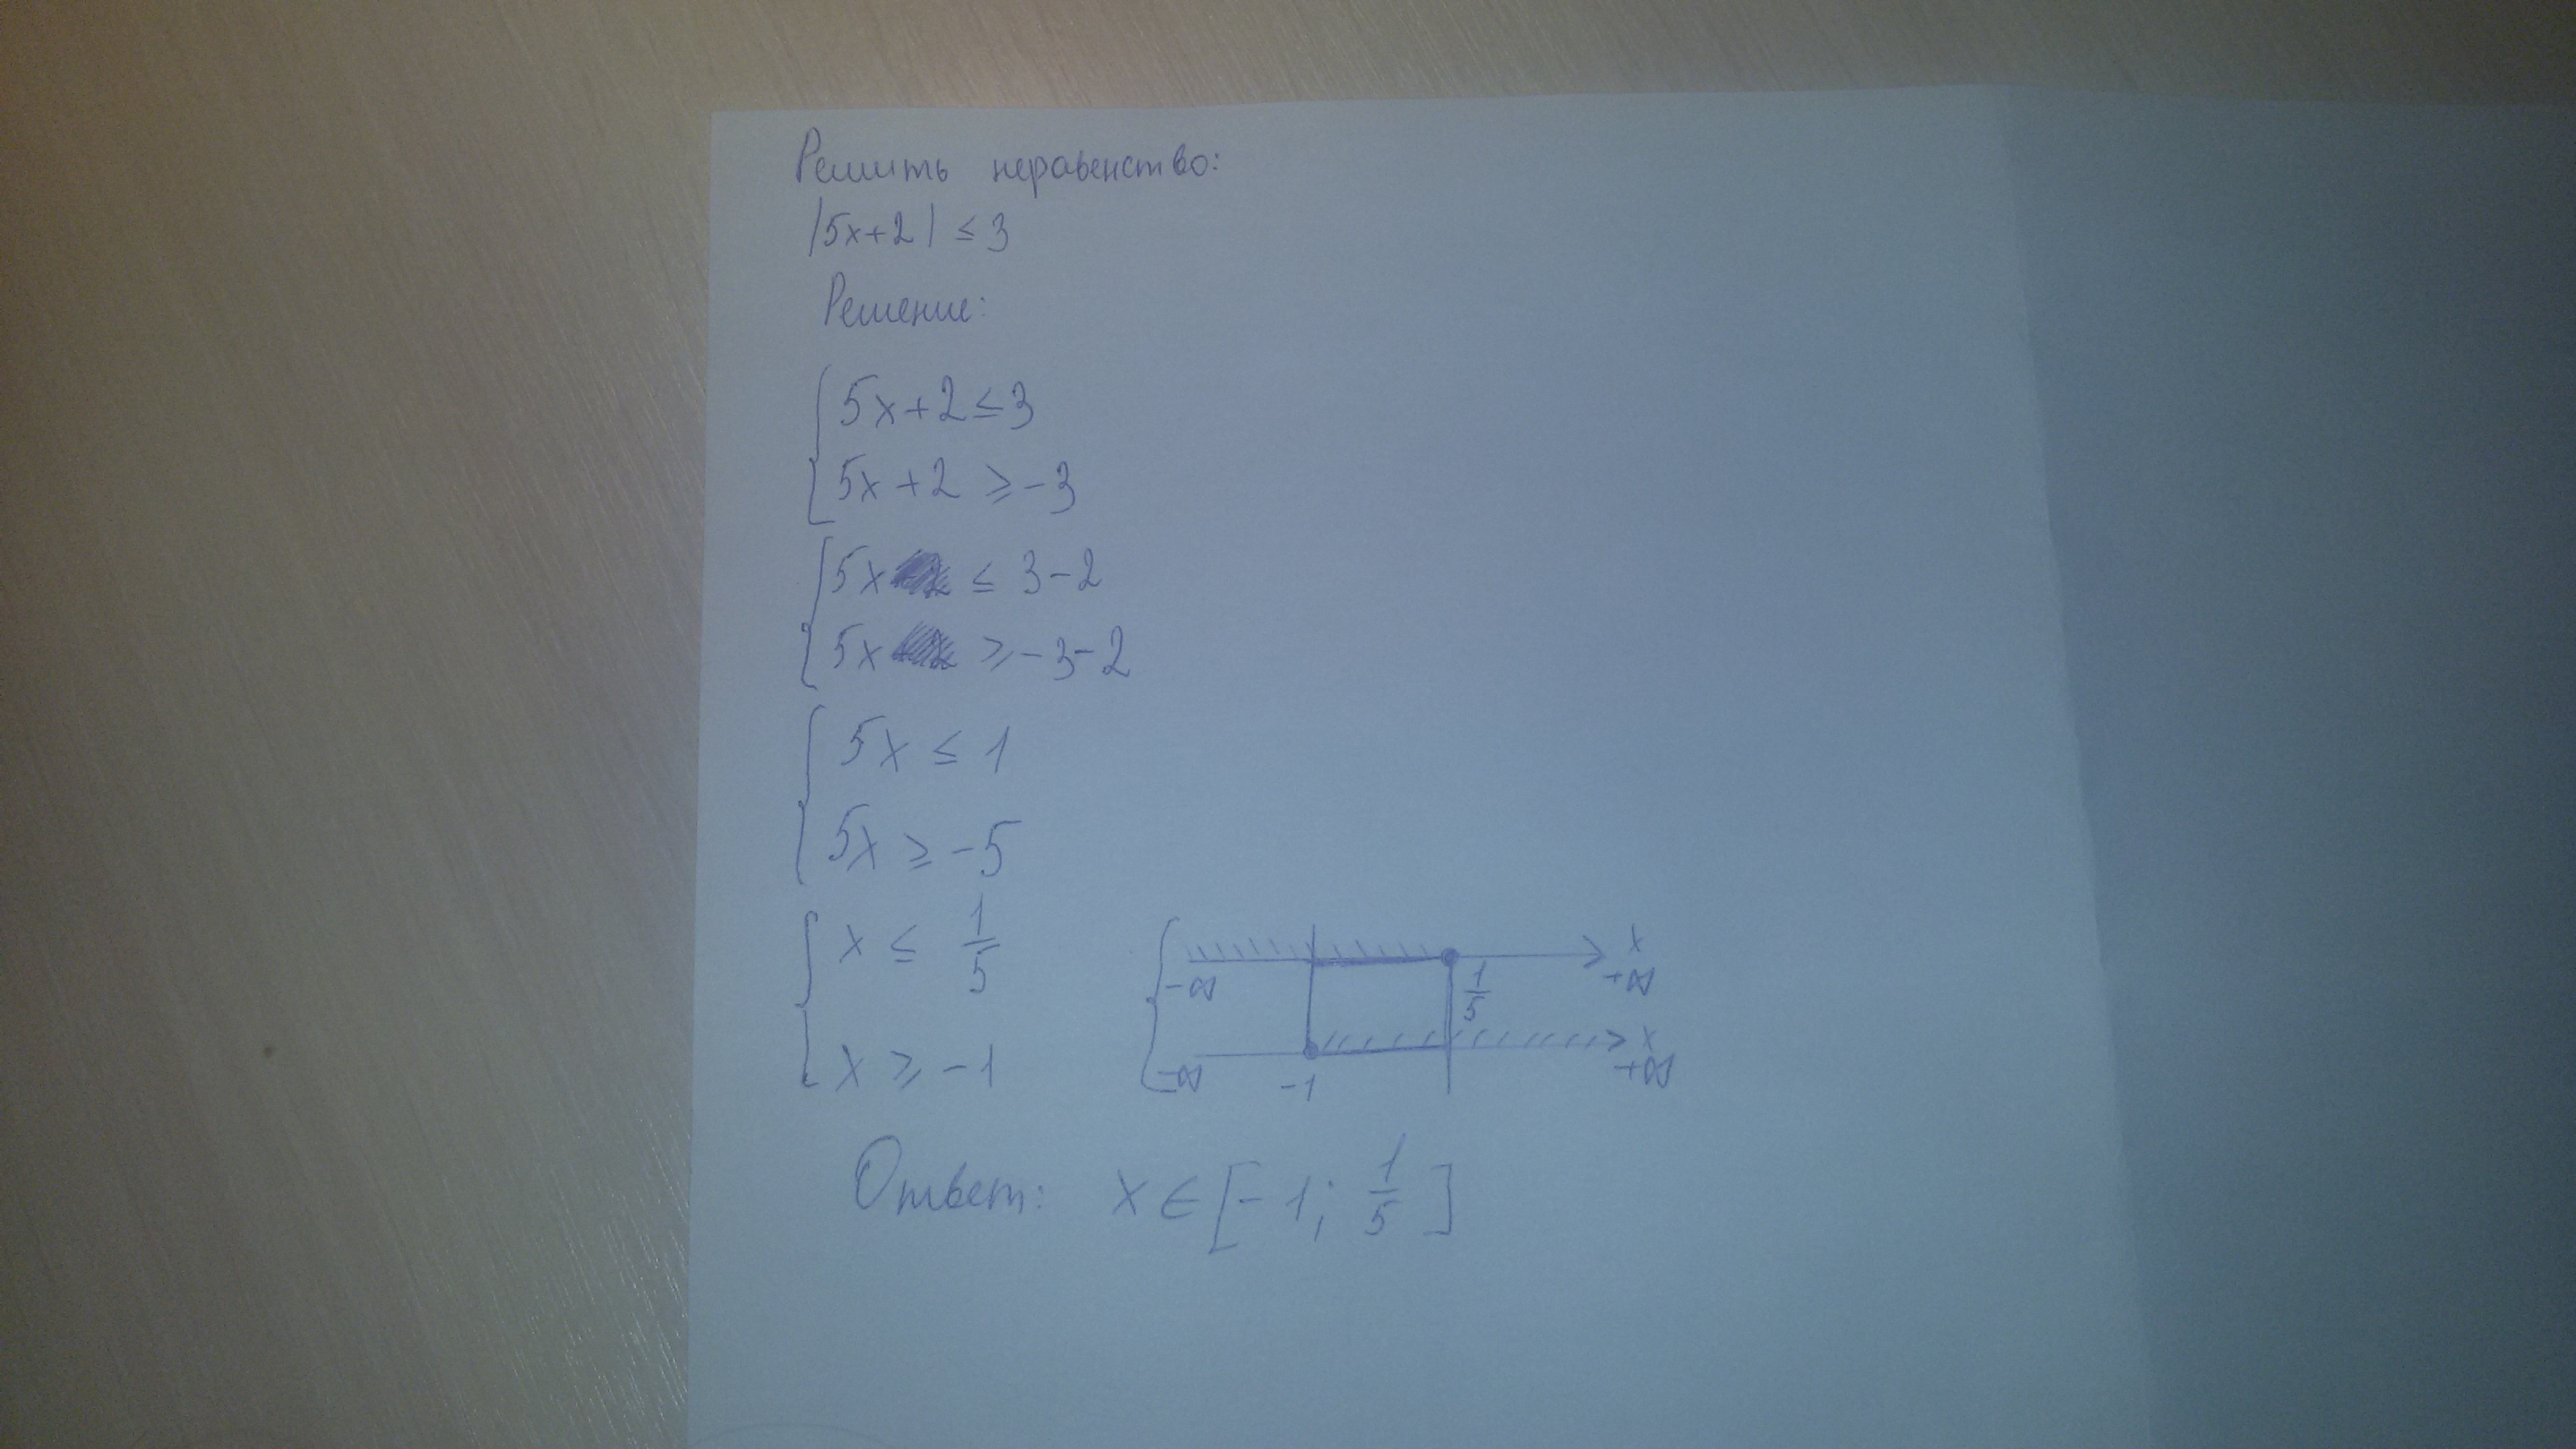 Решить неравенство:
|5x+2| ≤ 3
Решение:
5x+2 ≤ 3
5x+2 ≥ -3
5x ≤ 3-2
5x ≥ -3-2
5x ≤ 1
5x ≥ -5
x ≤ 1/5
x ≥ -1
x
-∞ 1/5 +∞
x
-∞ -1 +∞
Ответ: x ∈ [-1; 1/5]